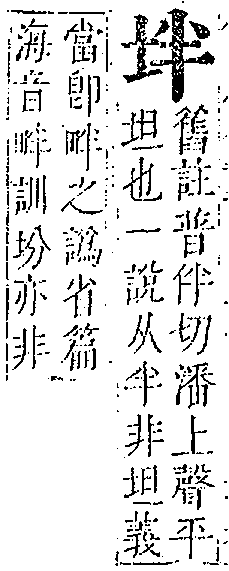 坢
舊註普伴切潘上聲平
坦也一說从半非坦義
當卽畔之譌省篇
海音畔訓坋亦非